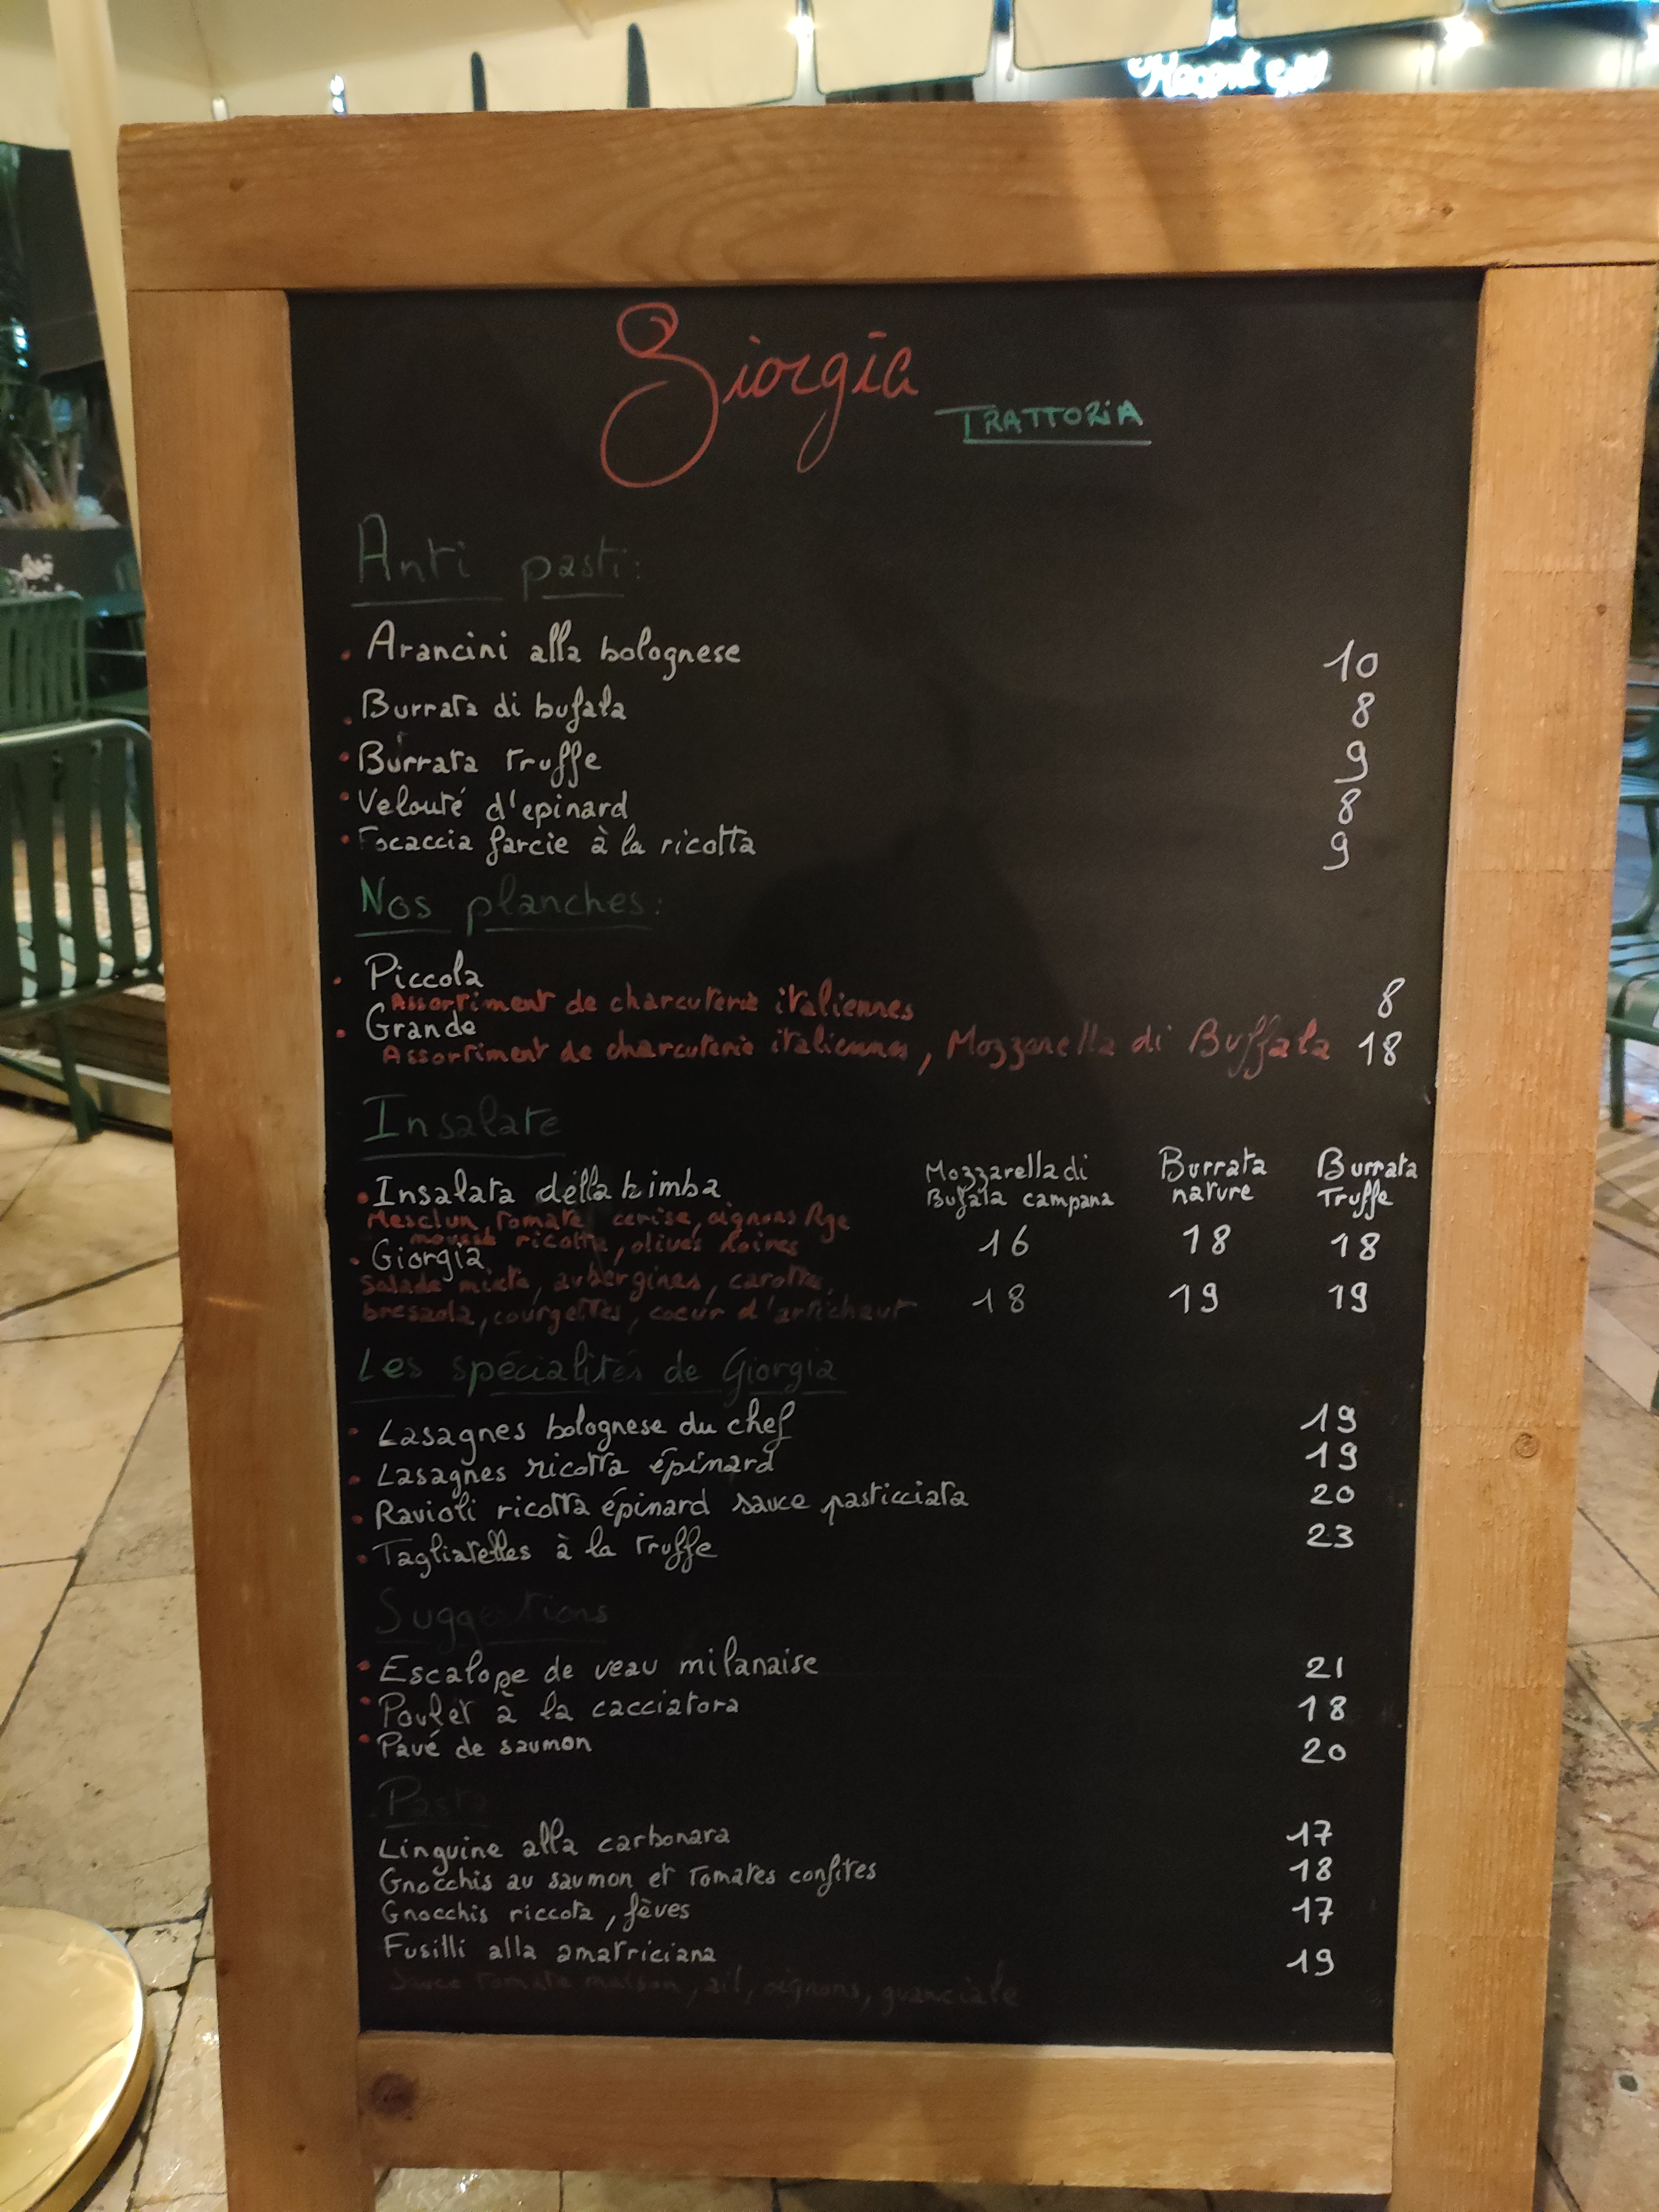 Giorgia
TRATTORIA
Anti pasti:
• Arancini alla bolognese 10
• Burrata di bufala 8
• Burrata truffe 9
• Velouté d'epinard 8
• Focaccia farcie à la ricotta 9
Nos planches:
• Piccola
Assortiment de charcuterie italiennes 8
• Grande
Assortiment de charcuterie italiennes, Mozzarella di Buffala 18
Insalate
Mozzarella di Bufala campana
Burrata nature
Burrata Truffe
• Insalata della bimba
Mesclun, tomate cerise, oignons Rge
mousse ricotta, olives noires 16 18 18
• Giorgia
Salade mixte, aubergines, carotte,
bresaola, courgettes, coeur d'artichaut 18 19 19
Les spécialités de Giorgia
• Lasagnes bolognese du chef 19
• Lasagnes ricotta épinard 19
• Ravioli ricotta épinard sauce pasticciata 20
• Tagliatelles à la Truffe 23
Suggestions
• Escalope de veau milanaise 21
• Poulet à la cacciatora 18
• Pavé de saumon 20
Pasta
Linguine alla carbonara 17
Gnocchis au saumon et Tomates confites 18
Gnocchis riccota, fèves 17
Fusilli alla amatriciana 19
Sauce Tomate maison, ail, oignons, guanciale